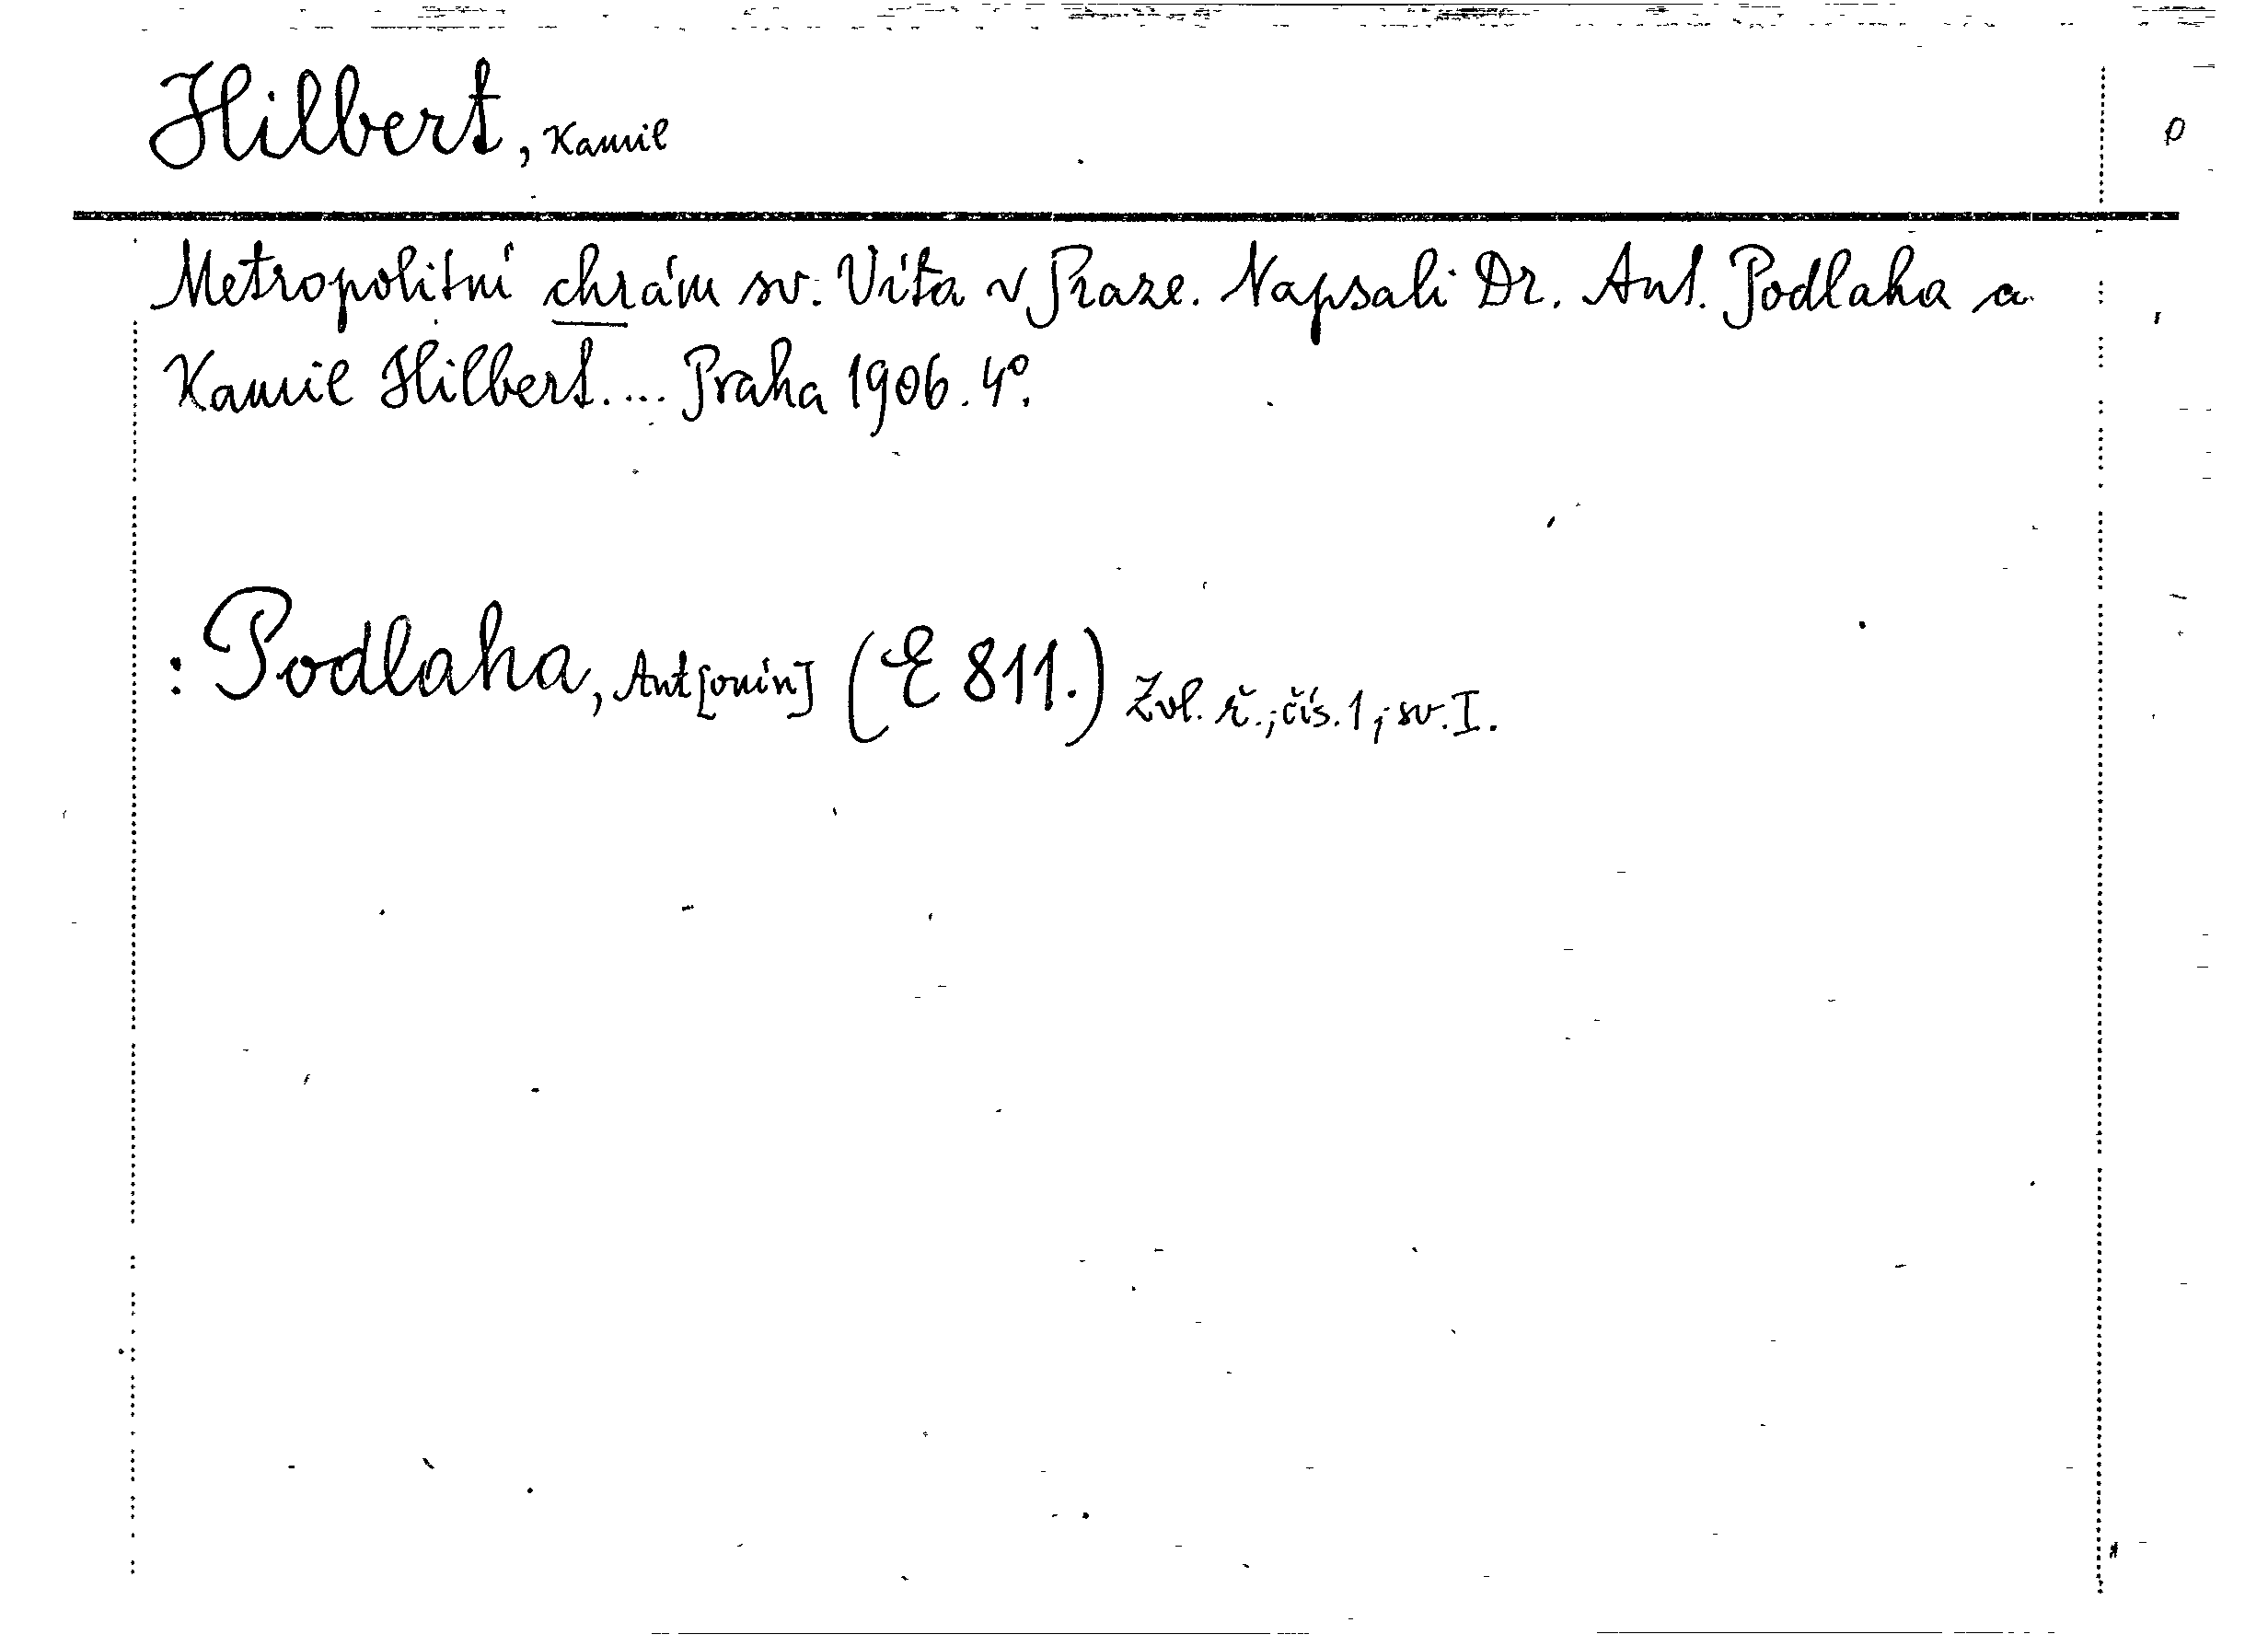 Hilbert, Kamil
Metropolitní chrám sv. Víta v Praze. Napsali Dr. Ant. Podlaha a
Kamil Hilbert.... Praha 1906. 4°.
: Podlaha, Ant[onín] (E 811.) Zvl. ř.; čís. 1; sv. I.